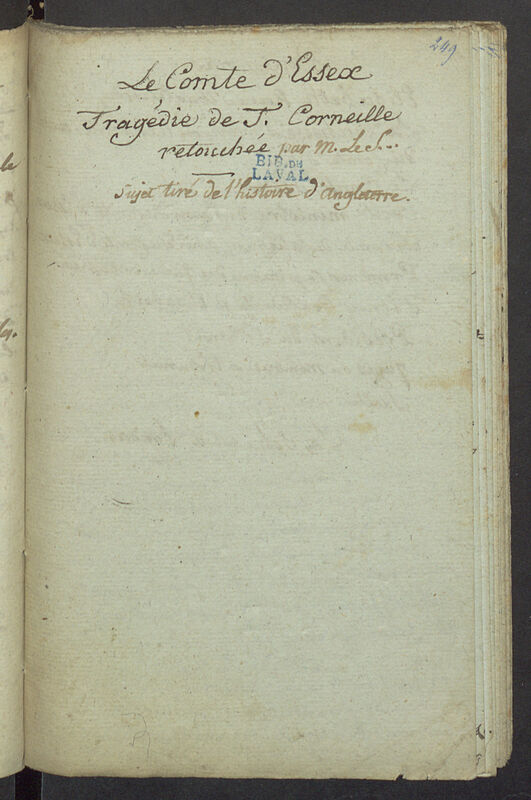 249
Le Comte d'Essex
Tragédie de T. Corneille
retouchée par M. Le
BIB. DE
LAVAL
Sujet tiré de l'histoire d'Angleterre.